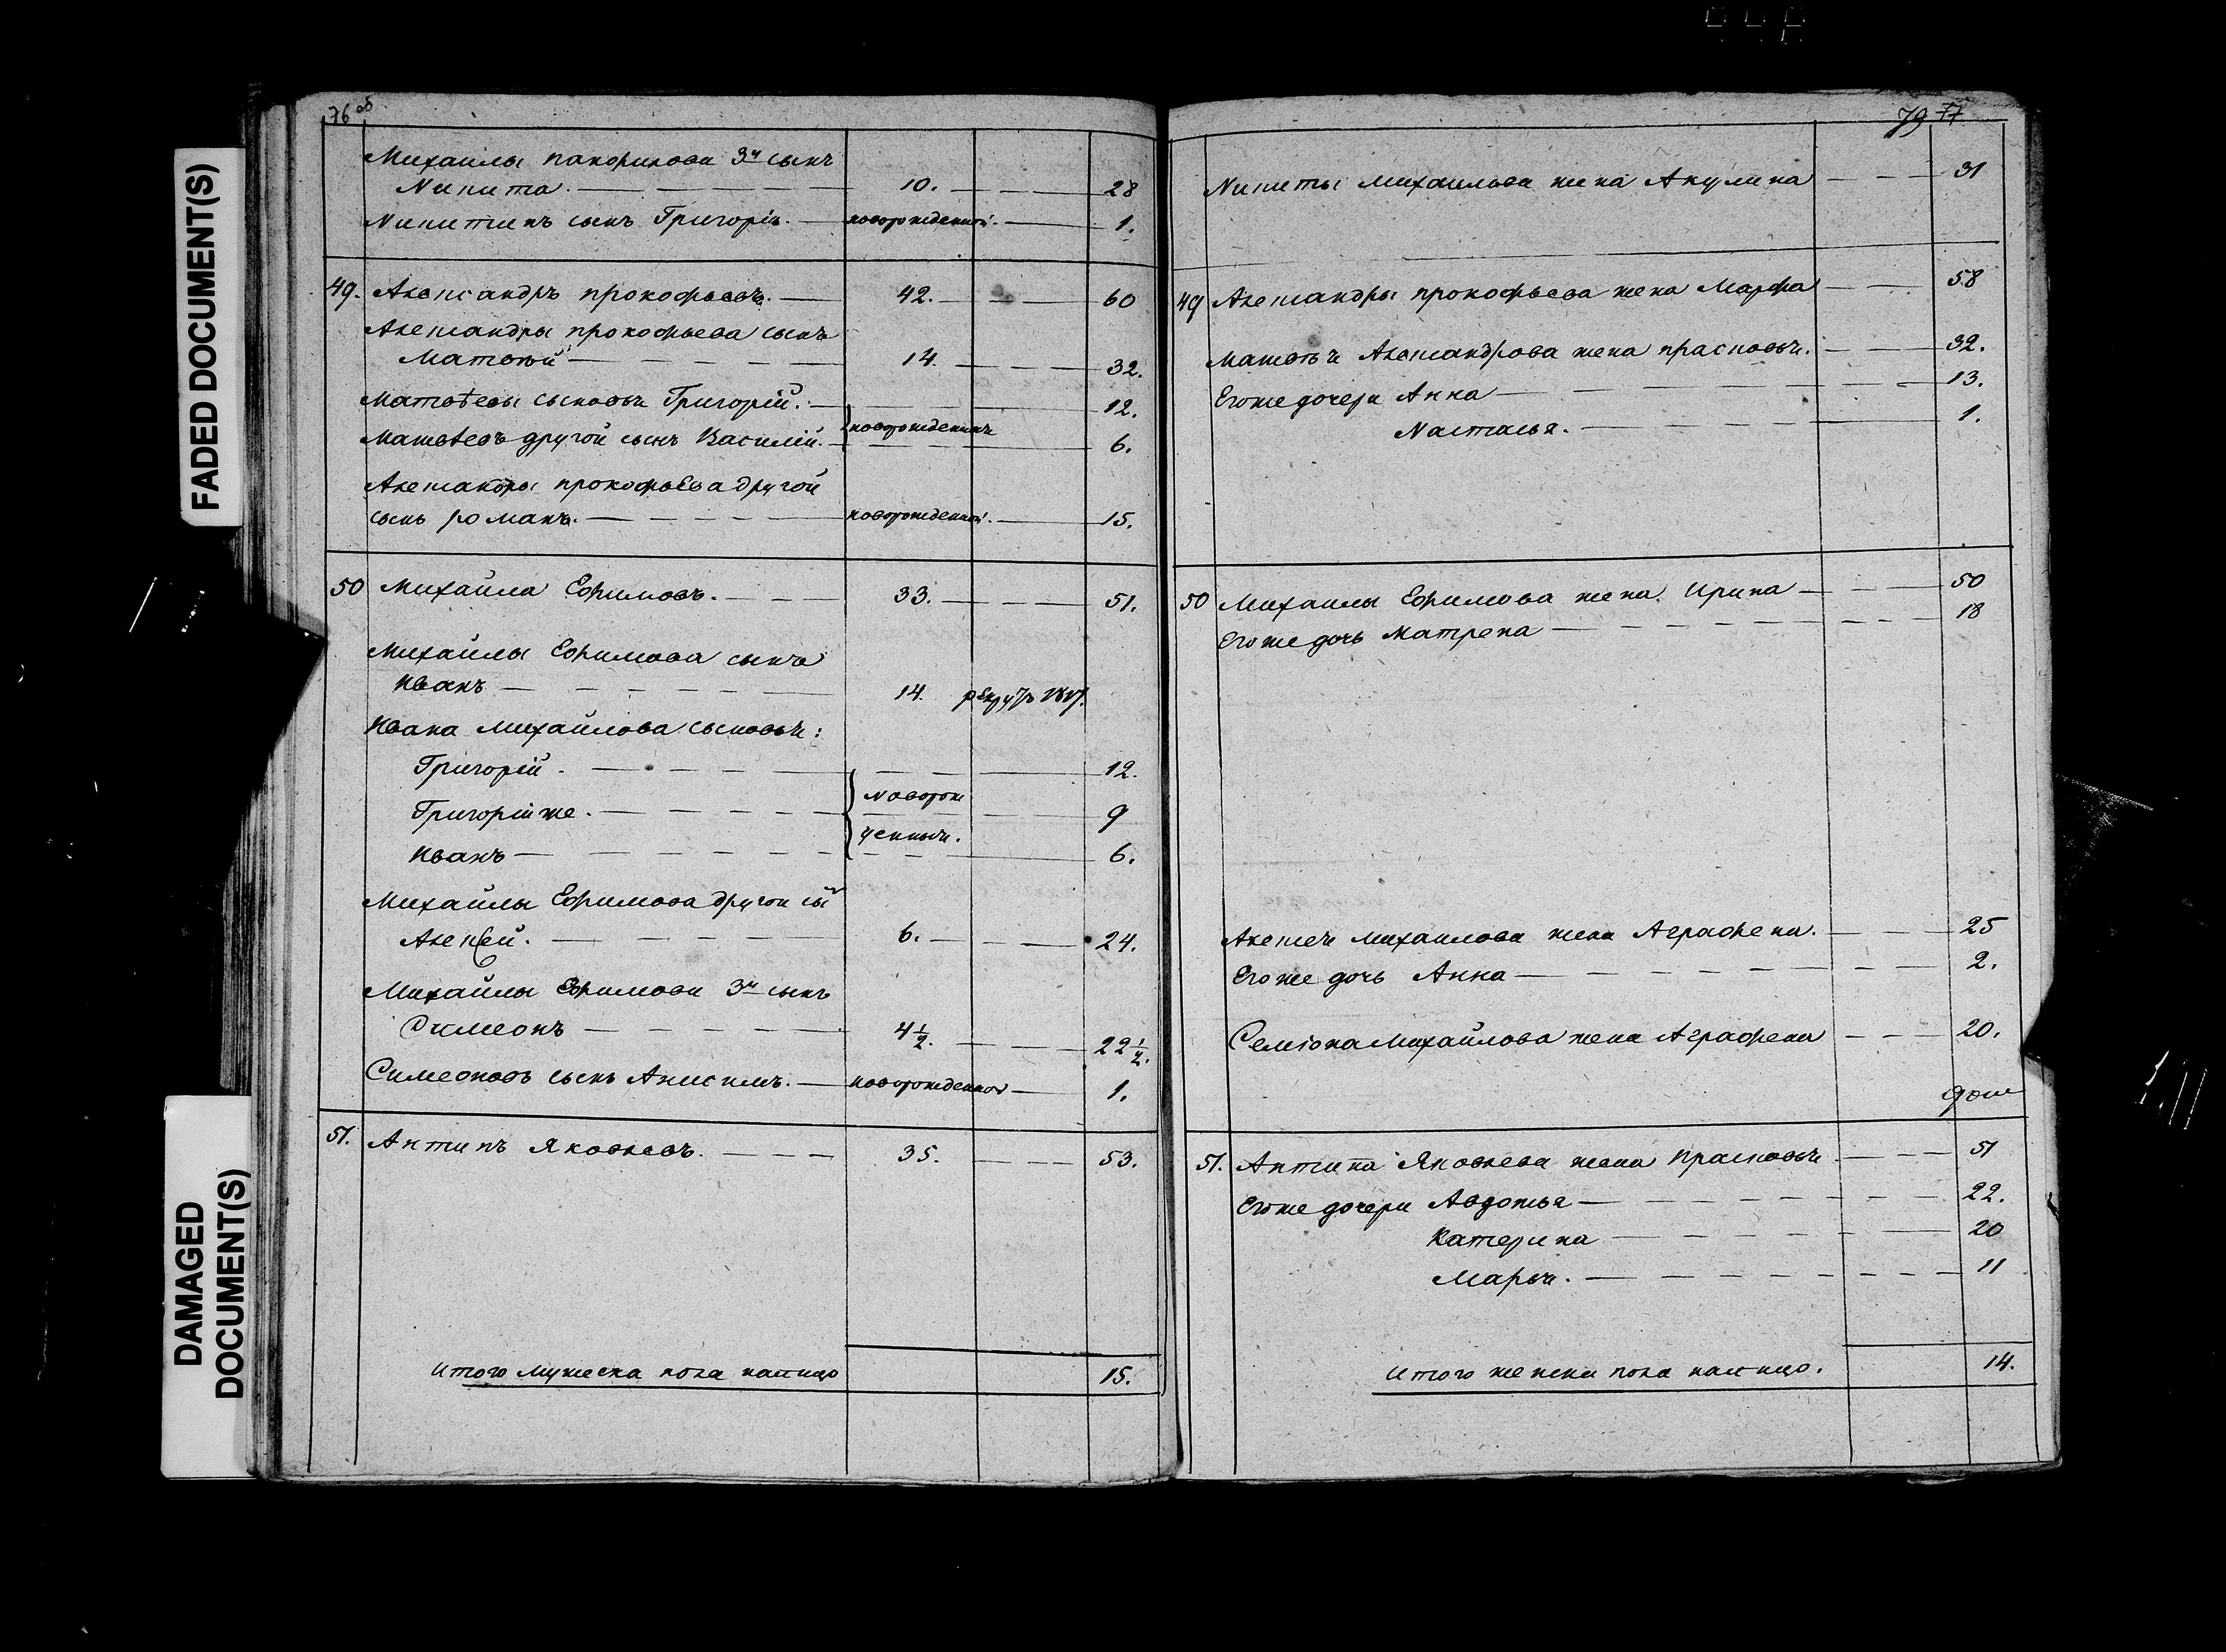 FADED DOCUMENT(S)
DAMAGED
DOCUMENT(S)
76 об
Михаилы 3й сынъ
Никита. 10. 28
Никитинъ сынъ Григорiй. новорожденной. 1.
49. Александръ прокофьевъ. 42. 60
Александры прокофьева сынъ
Матвѣй 14. 32.
Матвѣевы сыновья Григорiй. 12.
новорожденныя
Матвѣевъ другой сынъ Василiй. 6.
Александры прокофьева другой
сынъ романъ. новорожденной. 15.
50 Михайла Ефимовъ. 33. 51.
Михайлы Ефимова сынъ
Иванъ 14. рекрутъ
Ивана Михайлова сыновья:
Григорiй. 12.
Новорож
Григорiй же. 9
денныя.
Иванъ 6.
Михайлы Ефимова другой сы
Алексей. 6. 24.
Михайлы Ефимова 3й сынъ
Симеонъ 4½. 22½.
Симеоновъ сынъ Анисимъ. новорожденной 1.
51. Антипъ Яковлевъ. 35. 53.
Итого мужеска пола налицо 15.
79 77
Никиты Михайлова жена Акулина 31
49 Александры прокофьева жена Марфа 58
Матвѣя Александрова жена прасковья. 32.
Его же дочери Анна 13.
Настасья. 1.
50 Михайлы Ефимова жена Ирина 50
Его же дочь Матрена 18
Алексея Михайлова жена Аграфена. 25
Его же дочь Анна 2.
Семiона Михайлова жена Аграфена 20.
51. Антипа Яковлева жена Прасковья 51
Его же дочери Авдотья 22.
Катерина 20
Марья. 11
Итого женска пола налицо. 14.